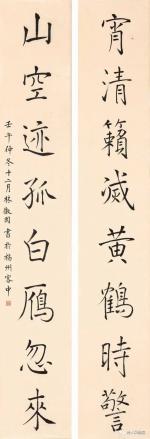 宵清籟滅黃鶴時警
山空迹孤白鴈忽來
壬午仲冬十二月林徽因書於揚州客中